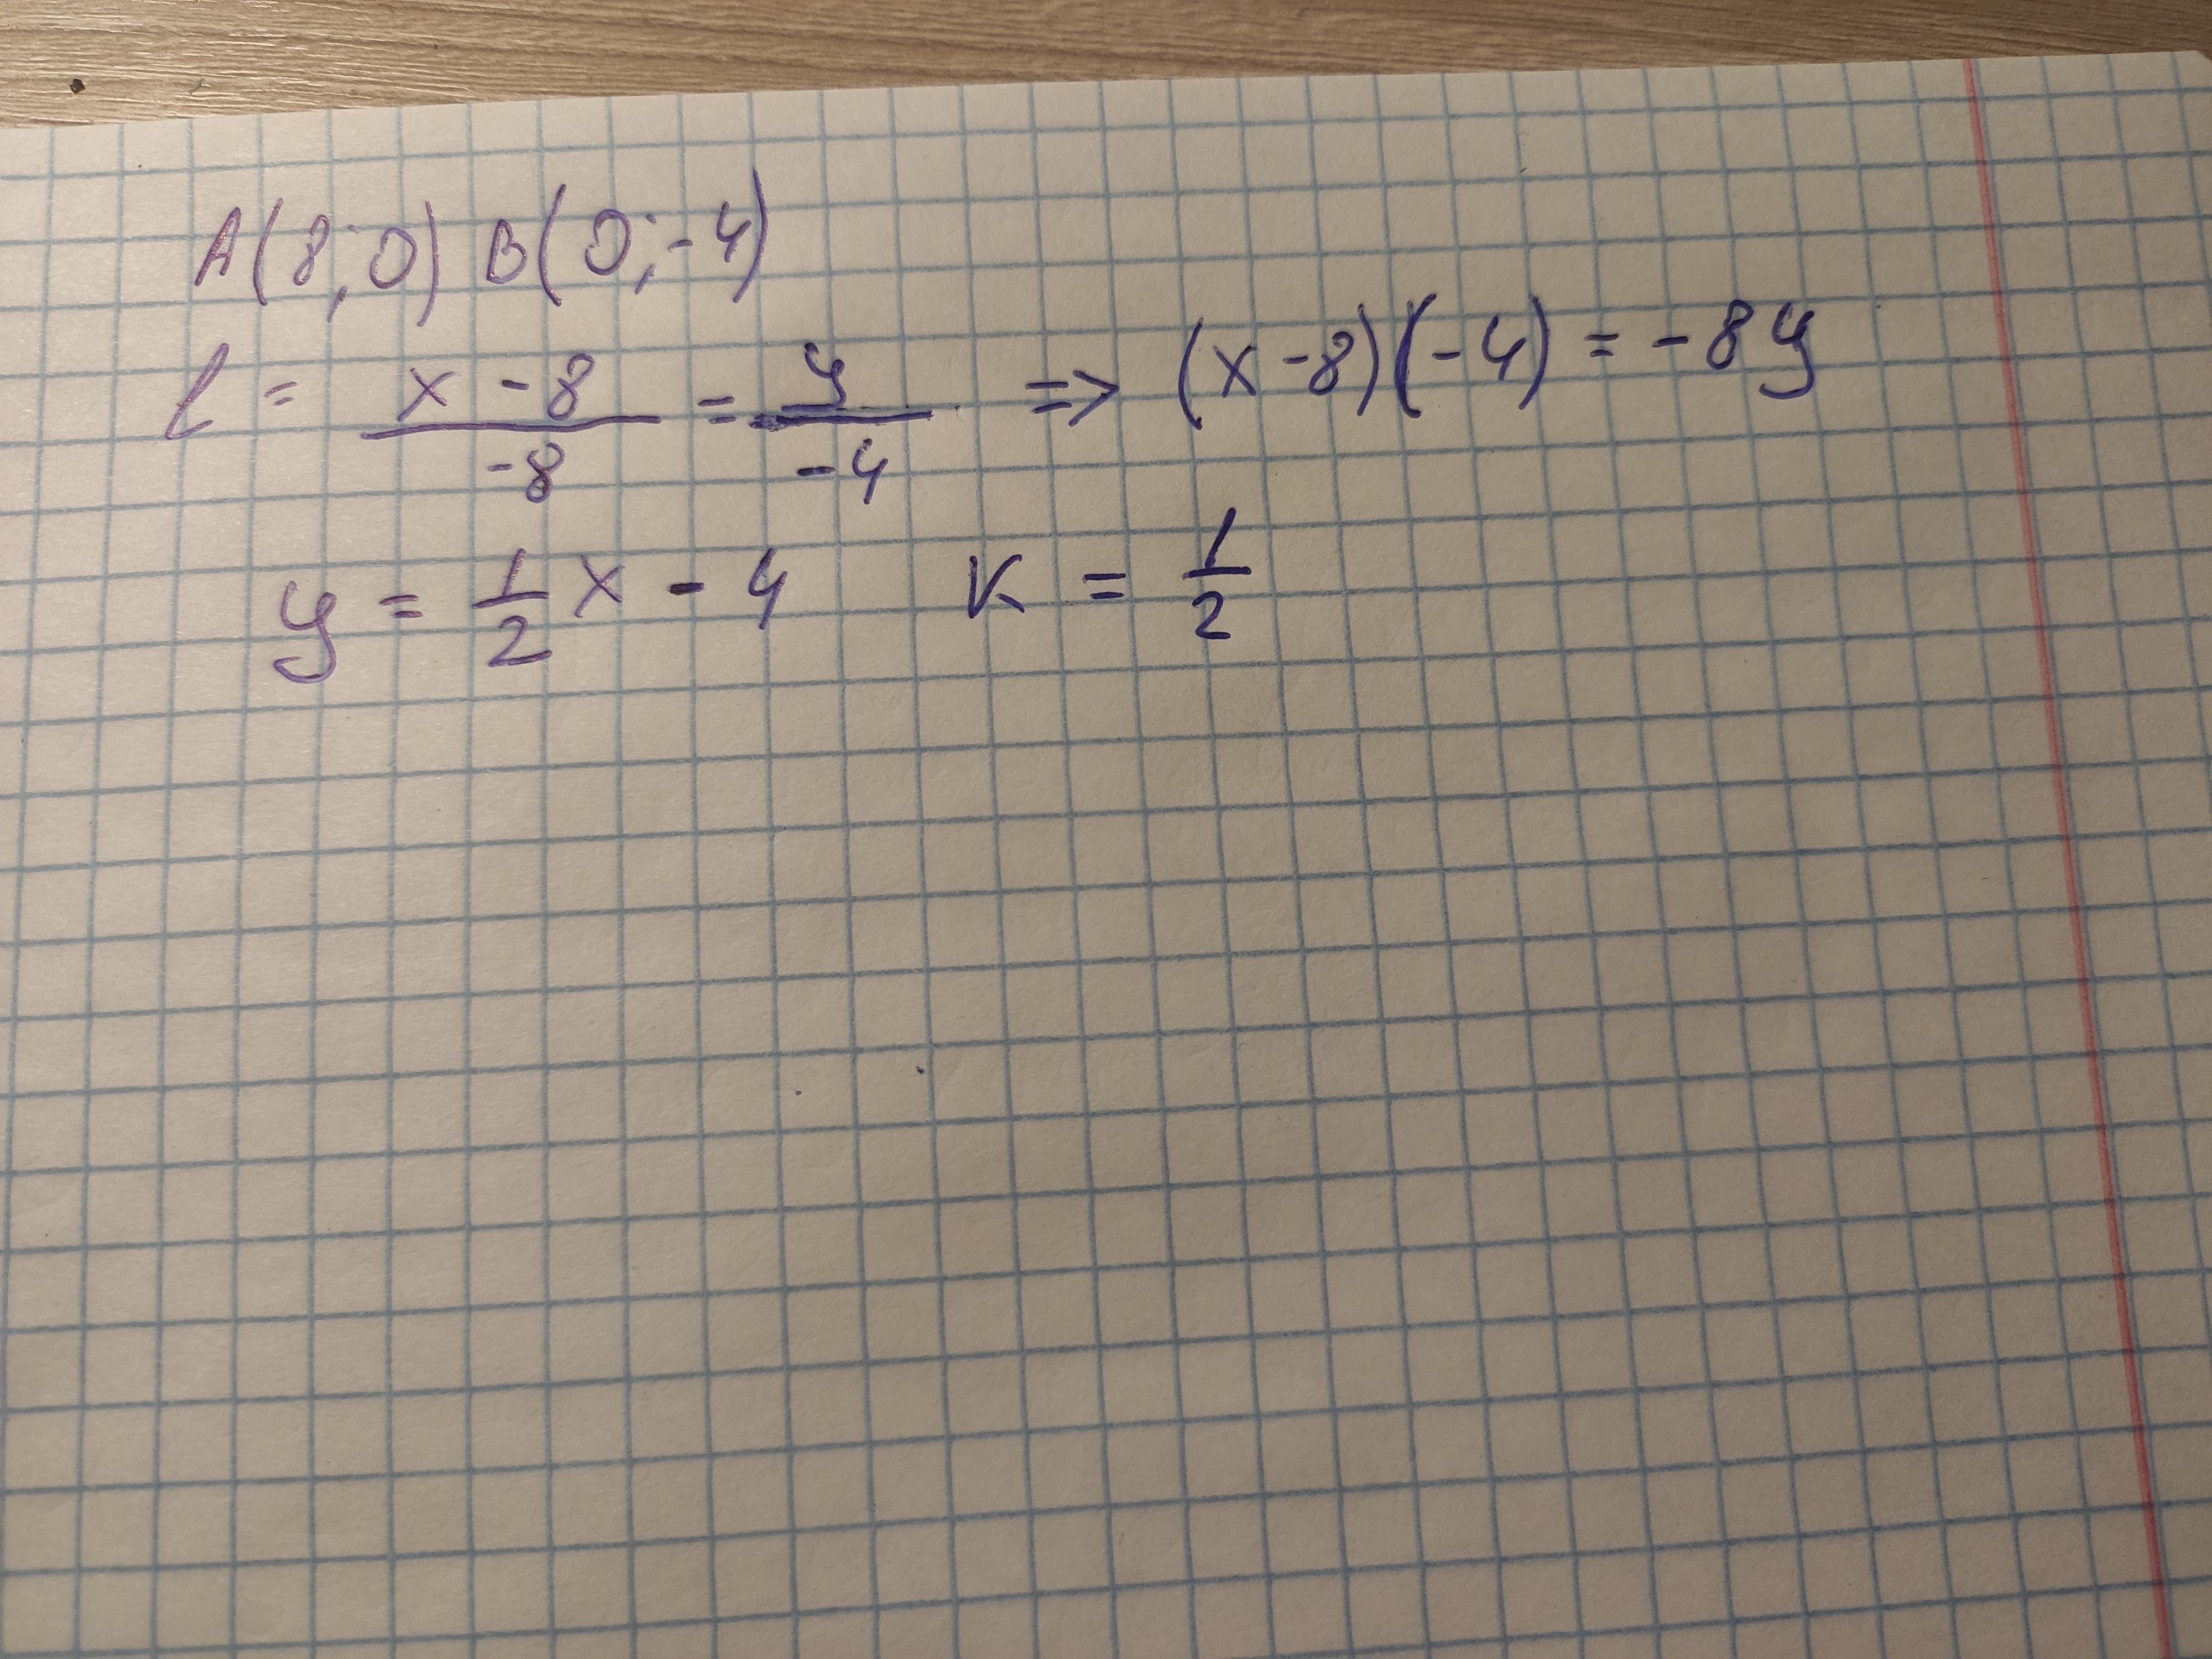 A(8;0) B(0;-4)
l = (x-8)/(-8) = y/(-4) => (x-8)(-4) = -8y
y = 1/2 x - 4 K = 1/2